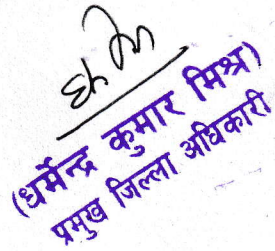 (धर्मेन्द्र कुमार मिश्र)
प्रमुख जिल्ला अधिकारी